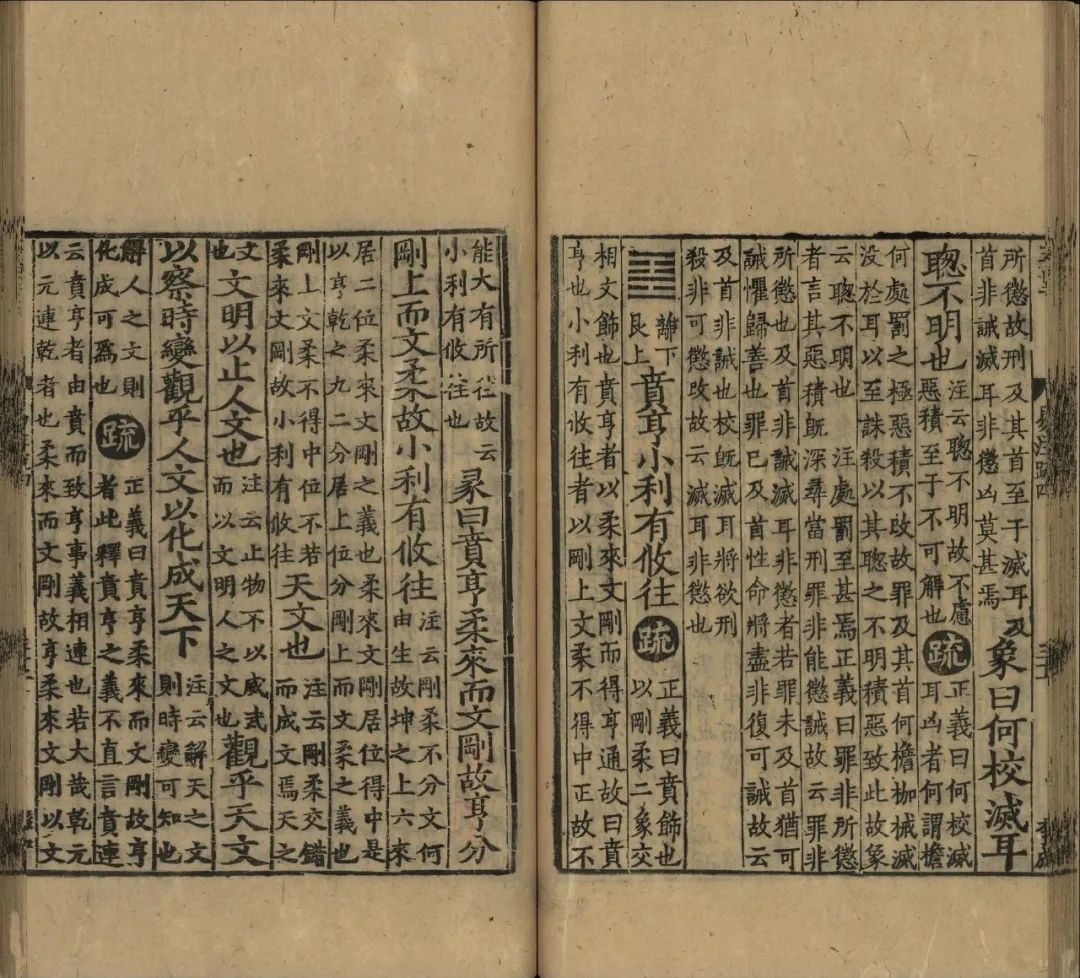 所懲故刑及其首至于滅耳及
首非誡滅耳非懲凶莫甚焉
象曰何校滅耳
聦不明也
注云聦不明故不慮
惡積至于不可解也
疏
正義曰何校滅
耳凶者何謂檐
何處罰之極惡積不改故罪及其首何檐枷械滅
没於耳以至誅殺以其聦之不明積惡致此故象
云聦不明也 注處罰至甚焉正義曰罪非所懲
者言其惡積旣深尋當刑罪非能懲誡故云罪非
所懲也及首非誡滅耳非懲者若罪未及首猶可
誡懼歸善也罪已及首性命將盡非復可誡故云
及首非誡也校旣滅耳將欲刑
殺非可懲改故云滅耳非懲也
䷕
離下
艮上
賁亨小利有攸往
疏
正義曰賁飾也
以剛柔二象交
相文飾也賁亨者以柔來文剛而得亨通故曰賁
亨也小利有攸往者以剛上文柔不得中正故不
易注疏四
能大有所往故云
小利有攸往也
彖曰賁亨柔來而文剛故亨分
剛上而文柔故小利有攸往
注云剛柔不分文何
由生故坤之上六來
居二位柔來文剛之義也柔來文剛居位得中是
以亨乾之九二分居上位分剛上而文柔之義也
剛上文柔不得中位不若
柔來文剛故小利有攸往
天文也
注云剛柔交錯
而成文焉天之
文
也
文明以止人文也
注云止物不以威武
而以文明人之文也
觀乎天文
以察時變觀乎人文以化成天下
注云解天之文
則時變可知也
解人之文則
化成可爲也
疏
正義曰賁亨柔來而文剛故亨
者此釋賁亨之義不直言賁連
云賁亨者由賁而致亨事義相連也若大哉乾元
以元連乾者也柔來而文剛故亨柔來文剛以文